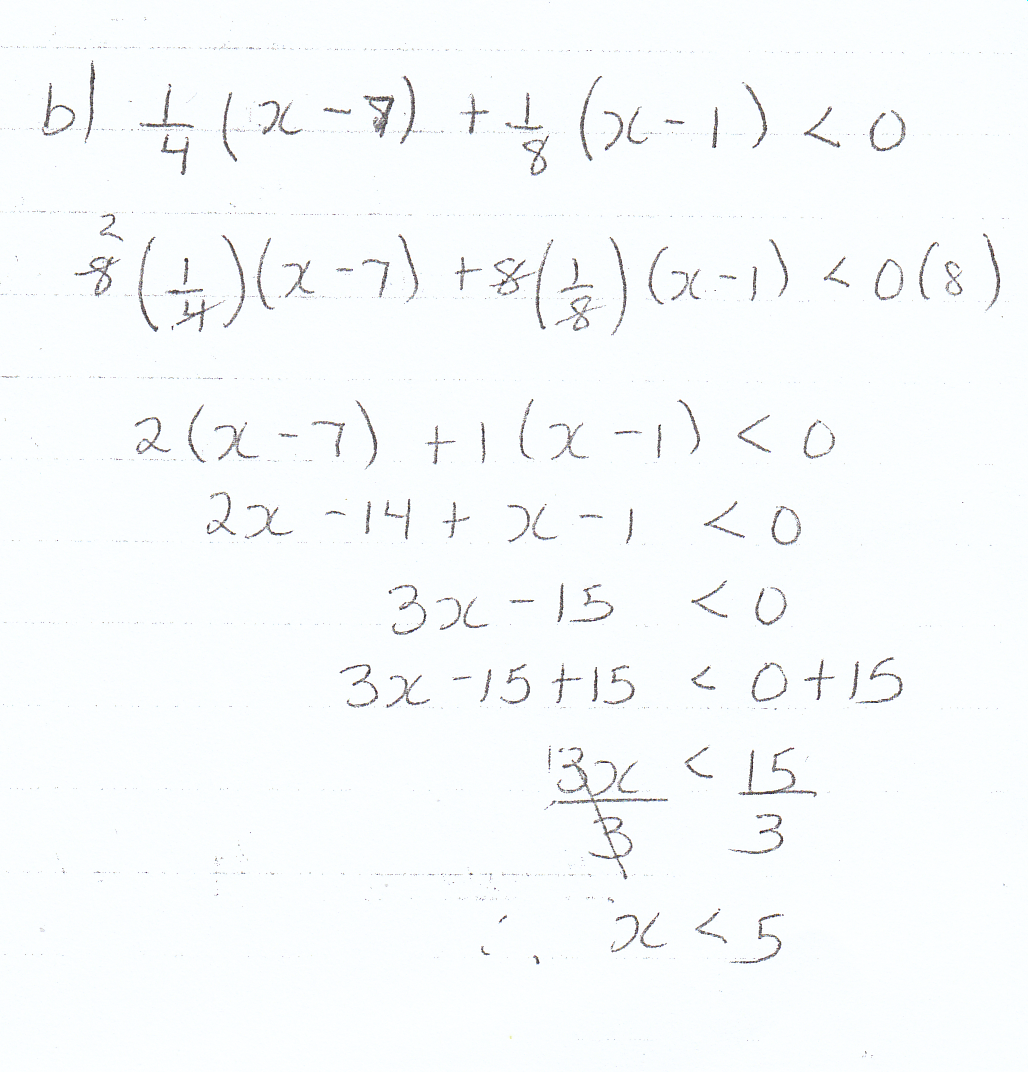 b) 1/4 (x - 7) + 1/8 (x - 1) < 0
2
8 (1/4)(x - 7) + 8(1/8)(x - 1) < 0(8)
2(x - 7) + 1(x - 1) < 0
2x - 14 + x - 1 < 0
3x - 15 < 0
3x - 15 + 15 < 0 + 15
1 3x/3 < 15/3
∴ x < 5